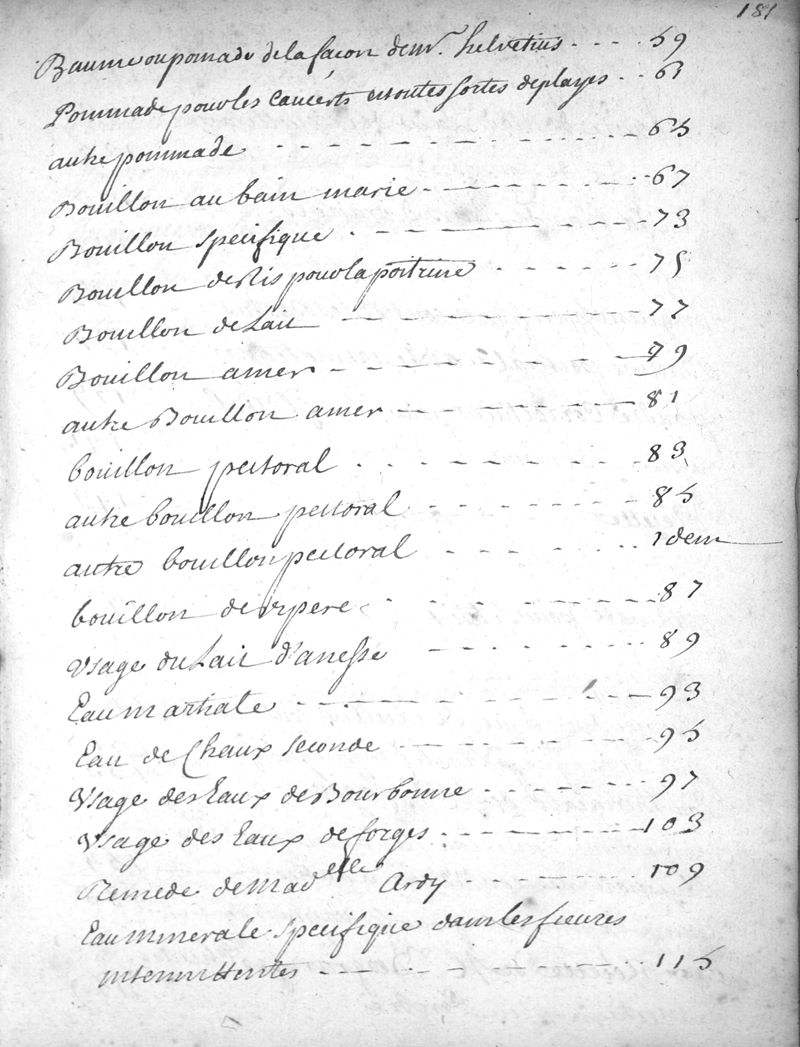 181
Baume ou pomade de la façon de mr. helvetius - - - - 59
Pommade pour les cancérs et toutes sortes de playes - - 61
autre pommade - - - - - - - - 65
Bouillon au bain marie - - - - - - - 67
Bouillon specifique - - - - - - - 73
Bouillon de Ris pour la poitrine - - - - - - 75
Bouillon de Lait - - - - - - - 77
Bouillon amer - - - - - - - 79
autre Bouillon amer - - - - - - - 81
bouillon pectoral - - - - - - - 83
autre bouillon pectoral - - - - - - 85
autre bouillon pectoral - - - - - - idem
bouillon de vipere - - - - - - - 87
Usage du Lait d'anesse - - - - - - 89
Eau martiale - - - - - - - 93
Eau de Chaux seconde - - - - - - - 95
Usage des Eaux de Bourbonne - - - - - 97
Usage des Eaux de forges - - - - - - 103
Remede de Madelle Ardy - - - - - - 109
Eau minerale specifique dans les fievres
intermittentes - - - - - - - 115